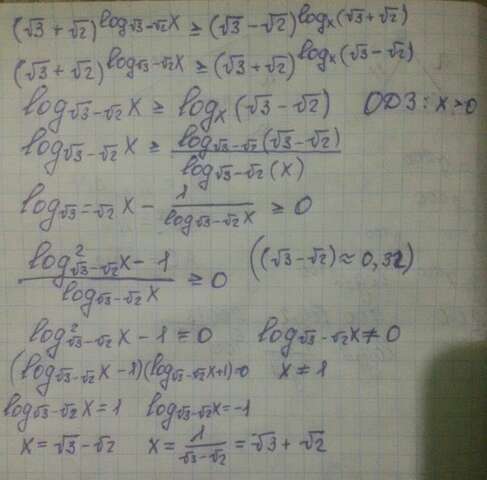 (√3 + √2)^(log_(√3-√2) x) ≥ (√3 - √2)^(log_x (√3 + √2))
(√3 + √2)^(log_(√3-√2) x) ≥ (√3 + √2)^(log_x (√3 - √2))
log_(√3-√2) x ≥ log_x (√3 - √2) ОДЗ: x > 0
log_(√3-√2) x ≥ log_(√3-√2) (√3 - √2) / log_(√3-√2) (x)
log_(√3-√2) x - 1 / log_(√3-√2) x ≥ 0
(log²_(√3-√2) x - 1) / log_(√3-√2) x ≥ 0 ((√3 - √2) ≈ 0,32)
log²_(√3-√2) x - 1 = 0 log_(√3-√2) x ≠ 0
(log_(√3-√2) x - 1)(log_(√3-√2) x + 1) = 0 x ≠ 1
log_(√3-√2) x = 1 log_(√3-√2) x = -1
x = √3 - √2 x = 1 / (√3 - √2) = √3 + √2